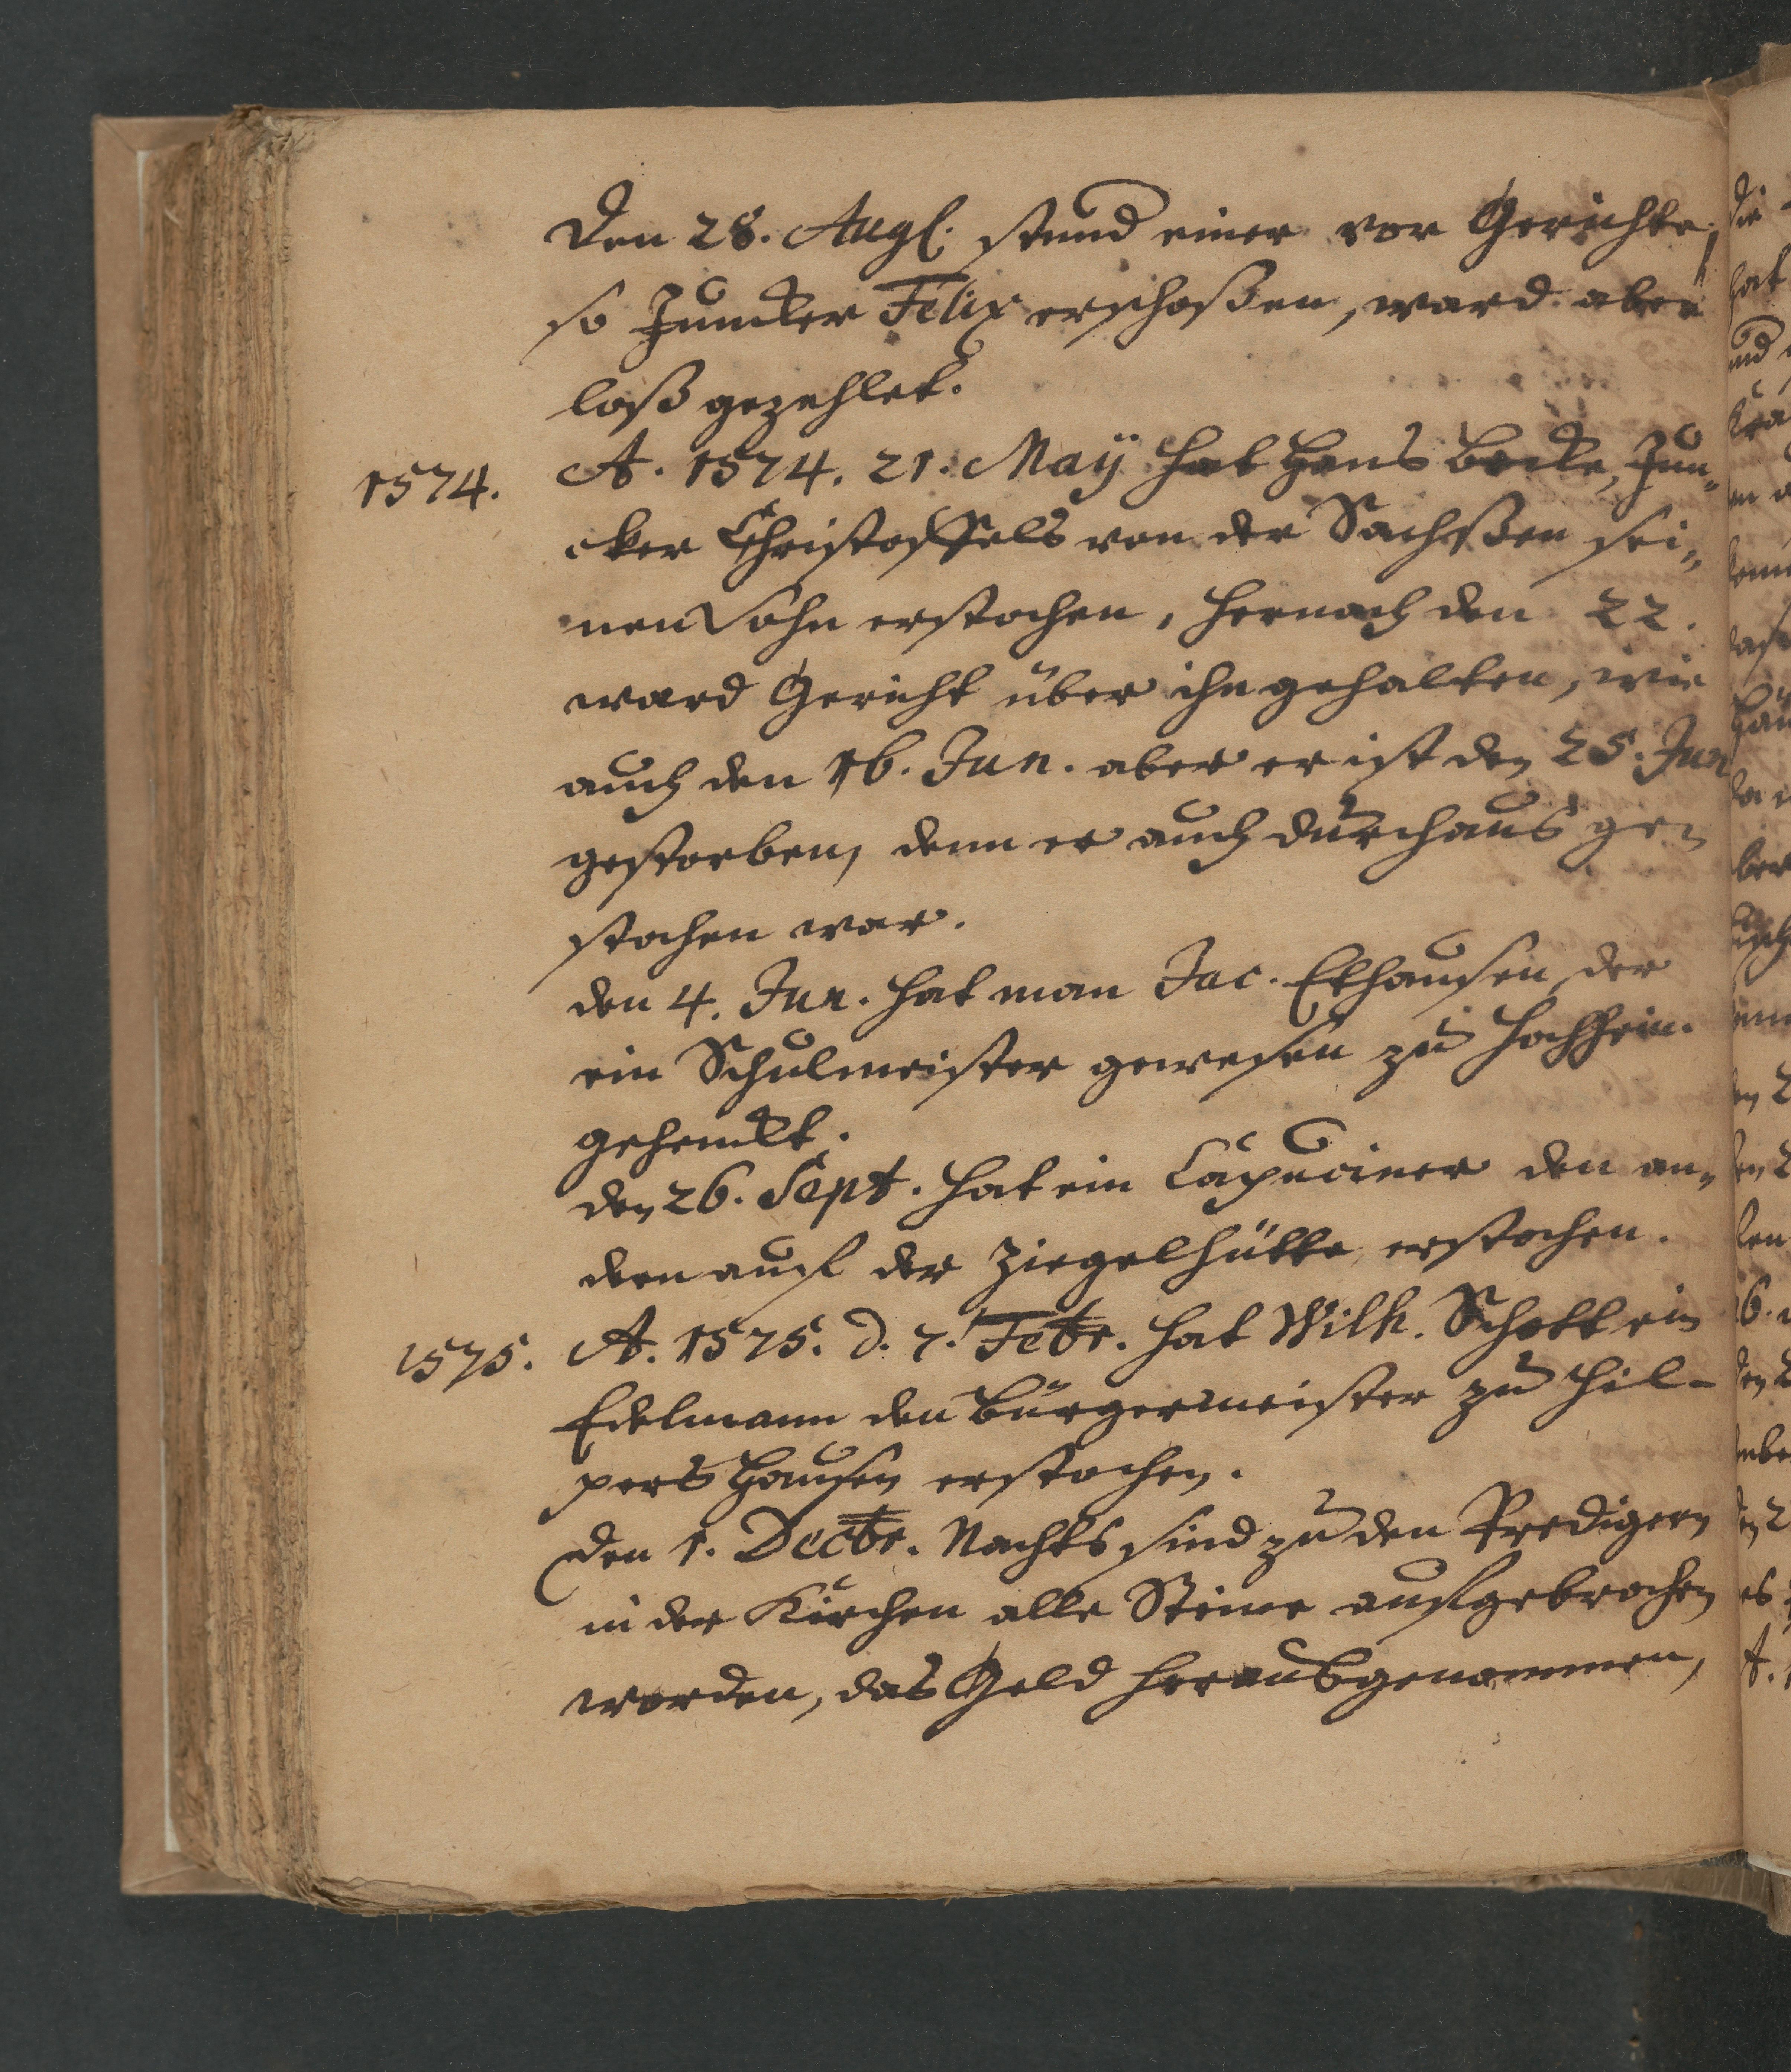 Den 28. Aug. stund einer vor Gerichte,
so Juncker Felix erschoßen, ward aber
loß gezehlet.
1574. A. 1574. 21. Maÿ hat Hans Bocke, Jun„
cker Christoffels von der Sachßen sei„
nen Sohn erstochen, hernach den 22.
ward Gericht über ihn gehalten, wie
auch den 16. Jun. aber er ist den 25. Jun
gestorben, denn er auch durchaus ge„
stochen war.
den 4. Jun. hat man Jac. Ekhausen der
ein Schulmeister gewesen zu Hochheim.
gehenckt.
den 26. Sept. hat ein Capuciner den an„
dern auf der Ziegelhütte erstochen.
1575. A. 1575. d. 7. Febr. hat Wilh. Schott ein
Edelmann den Bürgermeister zu Hil-
pershausen erstochen.
Den 1. Decbr. Nachts sind zu den Predigern
in der Kirchen alle Steine aufgebrochen
worden, das Geld herausgenommen,